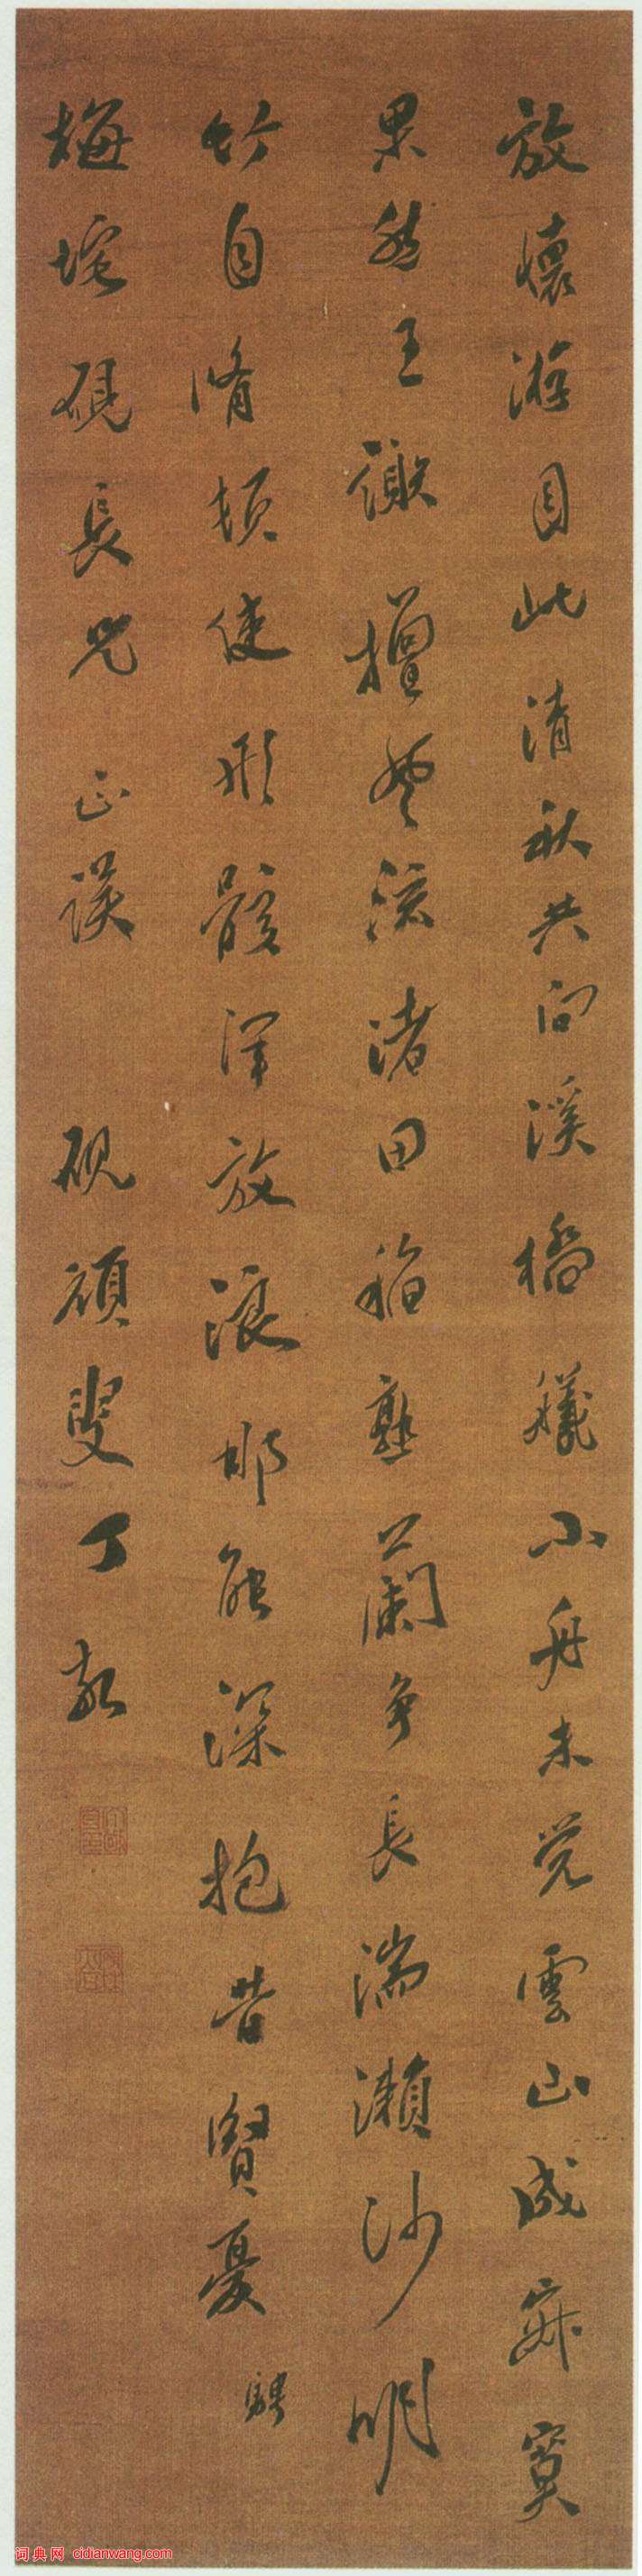 放懷游目此清秋共向溪橋艤小舟未覺雲山成寂寞
果然王謝擅風流渚田稻熟蘭争長湍瀨沙明
竹自脩頓使形骸渾放浪那能深抱昔賢憂 騁
梅垞硯長兄 正誤 硯頑叟丁敬
词典网 cidianwang.com